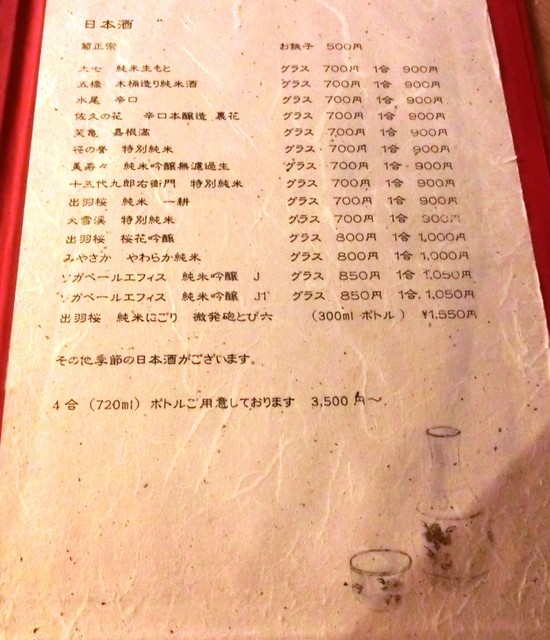 日本酒
菊正宗 お銚子 500円
大七 純米生もと グラス 700円 1合 900円
五橋 木桶造り純米酒 グラス 700円 1合 900円
水尾 辛口 グラス 700円 1合 900円
佐久の花 辛口本醸造 裏花 グラス 700円 1合 900円
笑亀 嘉根満 グラス 700円 1合 900円
笹の誉 特別純米 グラス 700円 1合 900円
美寿々 純米吟醸無濾過生 グラス 700円 1合 900円
十五代九郎右衛門 特別純米 グラス 700円 1合 900円
出羽桜 純米 一耕 グラス 700円 1合 900円
大雪渓 特別純米 グラス 700円 1合 900円
出羽桜 桜花吟醸 グラス 800円 1合 1,000円
みやさか やわらか純米 グラス 800円 1合 1,000円
ソガペールエフィス 純米吟醸 J グラス 850円 1合 1,050円
ソガペールエフィス 純米吟醸 J1 グラス 850円 1合 1,050円
出羽桜 純米にごり 微発砲とび六 (300ml ボトル) ¥1,550円
その他季節の日本酒がございます。
4合 (720ml) ボトルご用意しております 3,500円〜